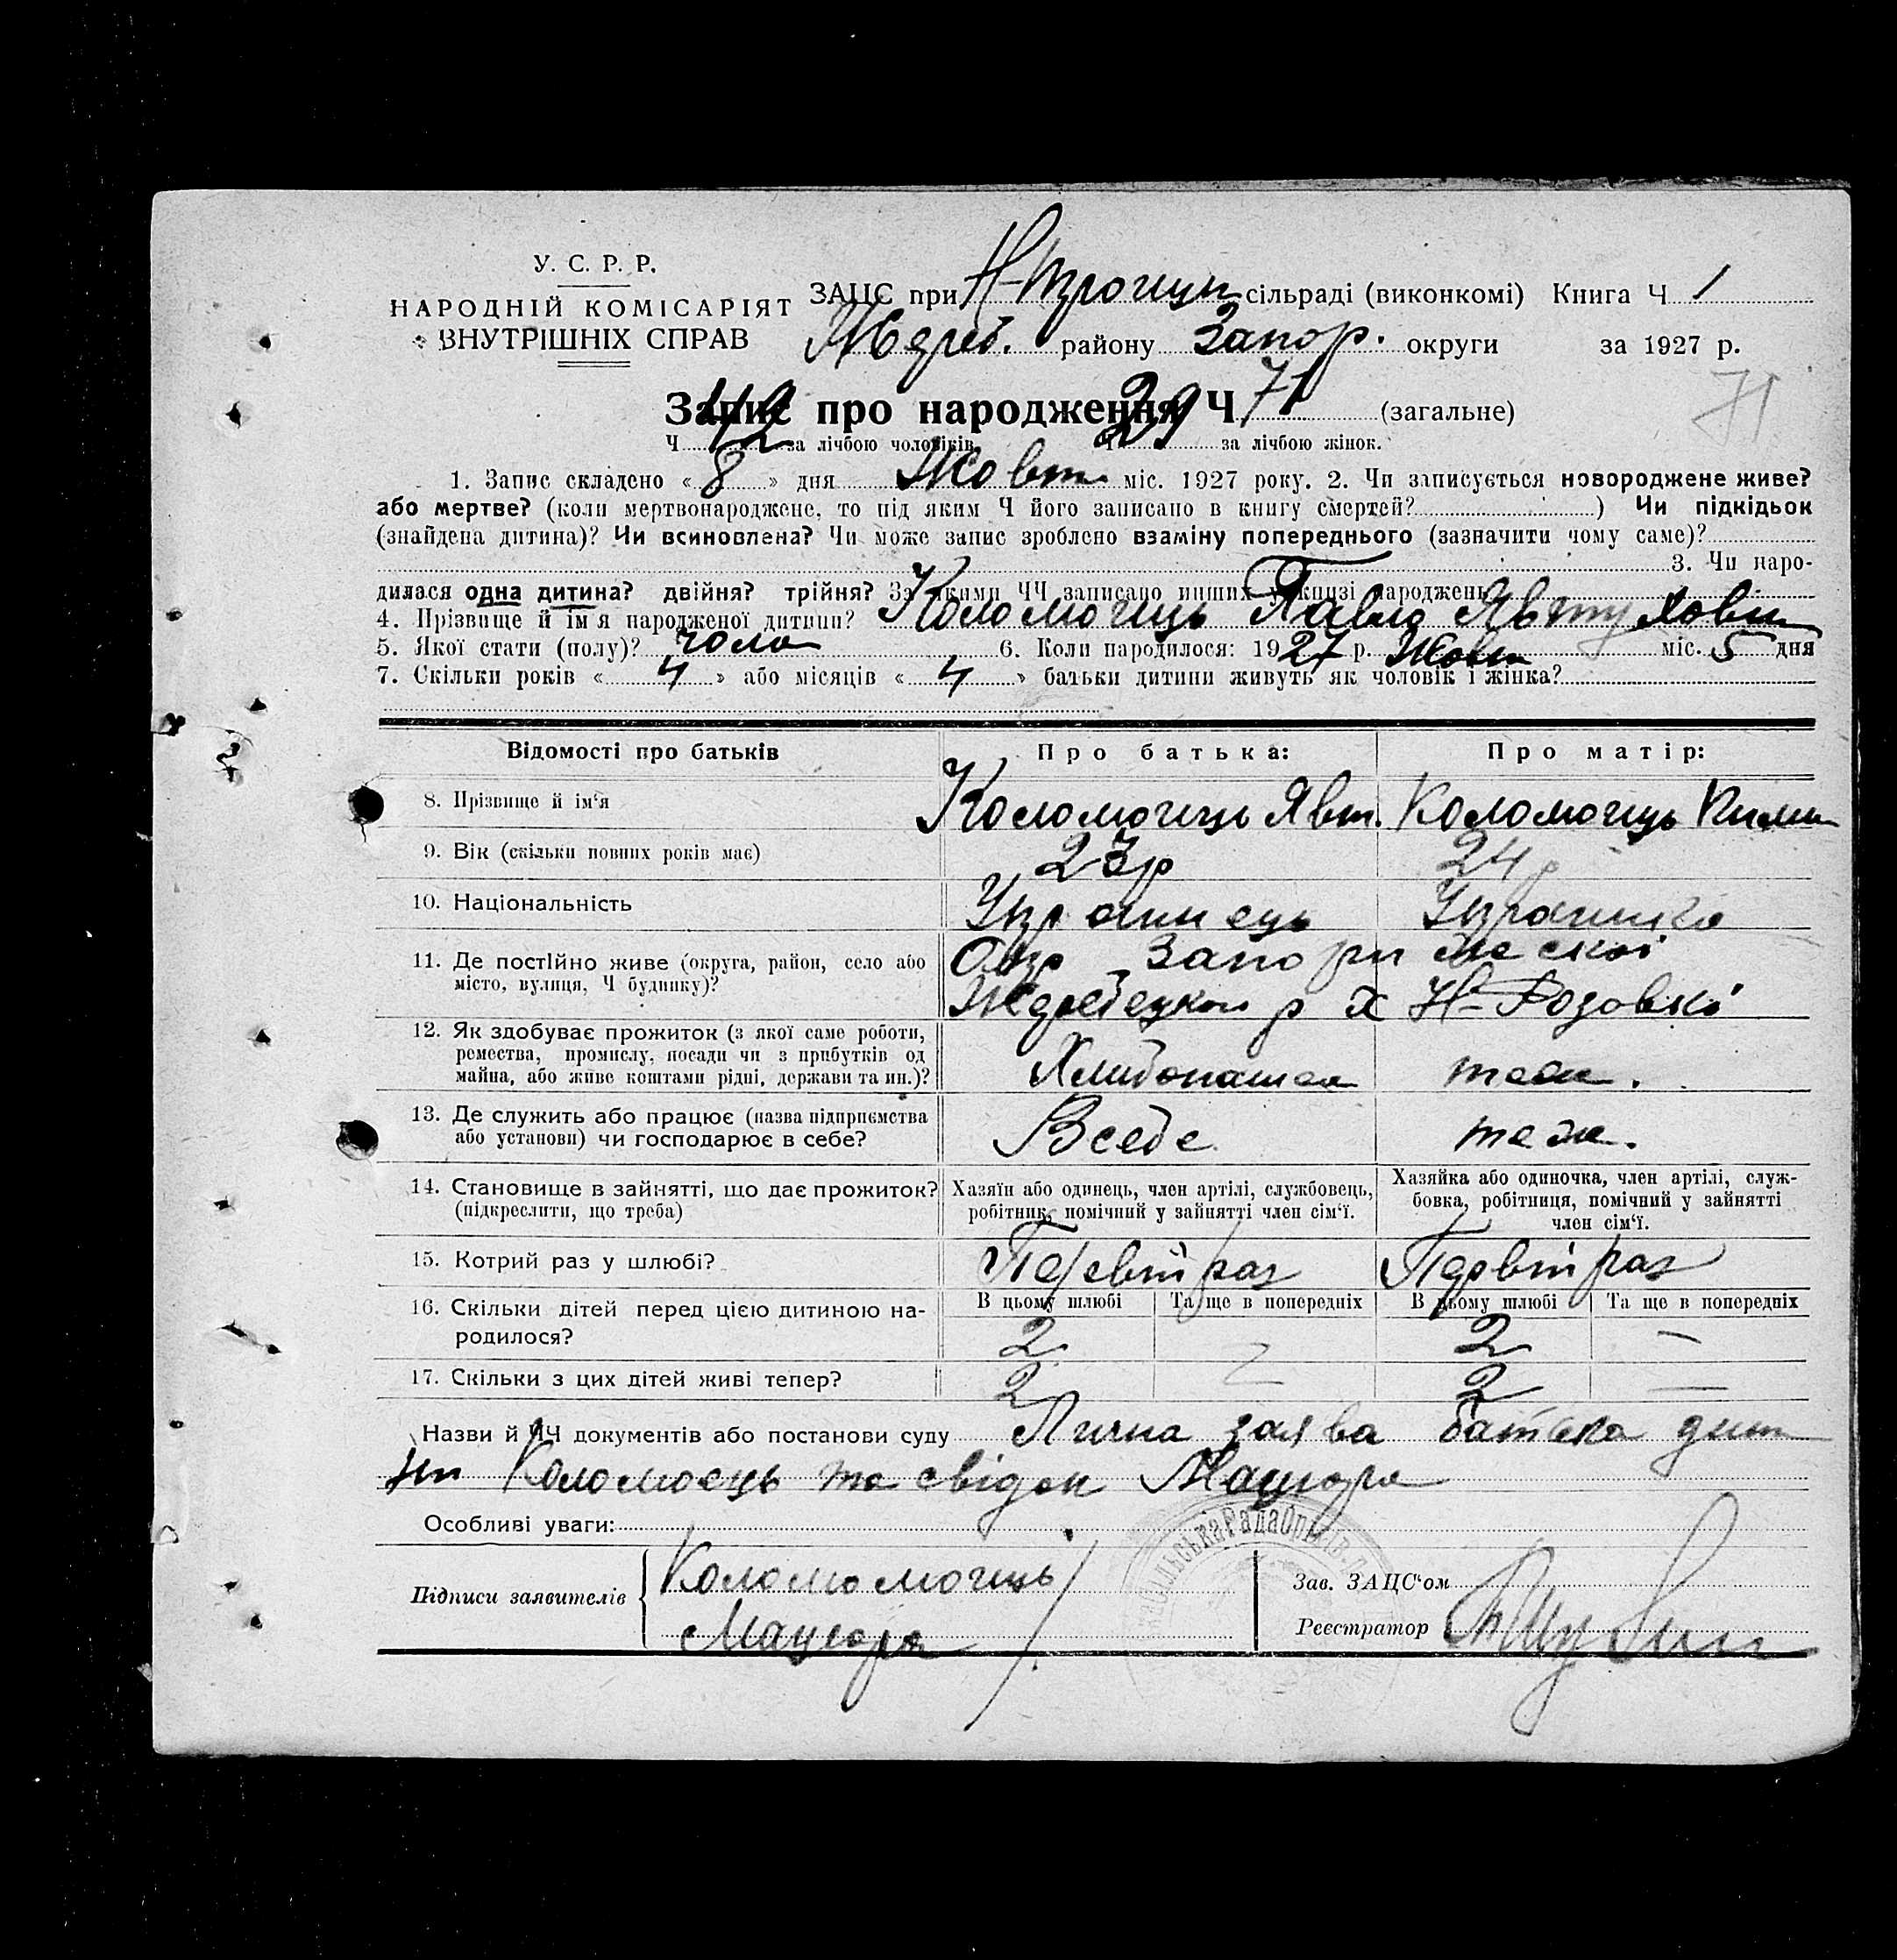 У. С. Р. Р.
НАРОДНІЙ КОМІСАРІЯТ
ВНУТРІШНІХ СПРАВ
ЗАЦС при Н-Троицк сільраді (виконкомі) Книга Ч 1
Жереб. району Запор. округи за 1927 р.
Запис про народження Ч 71 (загальне)
71
Ч 42 за лічбою чоловіків. Ч 29 за лічбою жінок.
1. Запис складено « 8 » дня Жовт міс. 1927 року. 2. Чи записується новороджене живе?
або мертве? (коли мертвонароджене, то під яким Ч його записано в книгу смертей? ) Чи підкідьок
(знайдена дитина)? Чи всиновлена? Чи може запис зроблено взаміну попереднього (зазначити чому саме)?
3. Чи наро-
дилася одна дитина? двійня? трійня? За якими ЧЧ записано инших у книзі народжень
4. Прізвище й ім'я народженої дитини? Коломоиць Павло Явтухови
5. Якої стати (полу)? чоло 6. Коли народилося: 1927 р. Жовт міс. 5 дня
7. Скільки років « 4 » або місяців « 4 » батьки дитини живуть як чоловік і жінка?
Відомості про батьків Про батька: Про матір:
8. Прізвище й ім'я Коломоиць Явт. Коломоиць
9. Вік (скільки повних років має) 23р 24р
10. Національність Украинець Украинка
11. Де постійно живе (округа, район, село або Окр Запорижскоі
місто, вулиця, Ч будинку)? Жеребецкои р х Н-Розовкі
12. Як здобуває прожиток (з якої саме роботи,
ремества, промислу, посади чи з прибутків од
майна, або живе коштами рідні, держави та ин.)? Хлибопашец теж.
13. Де служить або працює (назва підприємства
або установи) чи господарює в себе? Всебе теж.
14. Становище в зайнятті, що дає прожиток? Хазяїн або одинець, член артілі, службовець, Хазяйка або одиночка, член артілі, служ-
(підкреслити, що треба) робітник, помічний у зайнятті член сім'ї. бовка, робітниця, помічний у зайнятті
член сім'ї.
15. Котрий раз у шлюбі? Первій раз Первій раз
16. Скільки дітей перед цією дитиною на- В цьому шлюбі Та ще в попередніх В цьому шлюбі Та ще в попередніх
родилося? 2 – 2 –
17. Скільки з цих дітей живі тепер? 2 – 2 –
Назви й ЧЧ документів або постанови суду Лична заява батька дит
ни Коломоець та свідок Мацюра
Особливі уваги:
Підписи заявителів Коломоиць
Мацюра
Зав. ЗАЦС'ом
Реєстратор